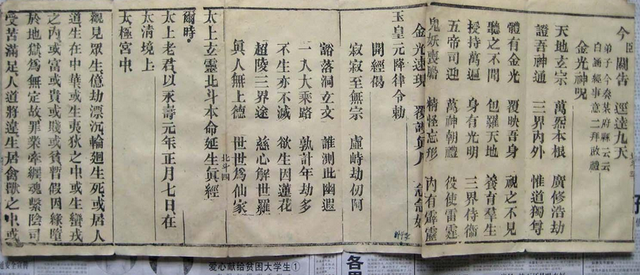 今臣關告 逕達九天
弟子 今奏某府縣云云
金光神呪
天地玄宗 萬炁本根 廣修浩劫
證吾神通 三界內外 惟道獨尊
體有金光 覆映吾身 視之不見
聽之不聞 包羅天地 養育羣生
授持萬遍 身有光明 三界侍衛
五帝司迎 萬神朝禮 役使雷霆
鬼妖喪膽 精怪忘形 內有霹靂
金光速現 覆護真人 急急如
玉皇元降律令勅
開經偈
寂寂至無宗 虛峙劫仞阿
豁落洞玄文 誰測此幽遐
一入大乘路 孰計年劫多
不生亦不滅 欲生因蓮花
超陵三界途 慈心解世羅
真人無上德 世世為仙家
北斗四
太上玄靈北斗本命延生真經
爾時
太上老君以永壽元年正月七日在
太清境上
太極宮中
觀見眾生億劫漂沉輪迴生死或居人
道生在中華或生夷狄之中或生蠻戎
之內或富或貴或賤或貧暫假因緣墮
於地獄為無定故罪業牽纏魂繫陰司
受苦滿足人道將違生居禽獸之中或
爱心献给贫困大学生①